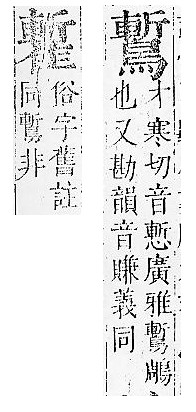 䳻
才寒切音慙廣雅䳻鵰
也又勘韻音賺義同
俗字舊註
同䳻非